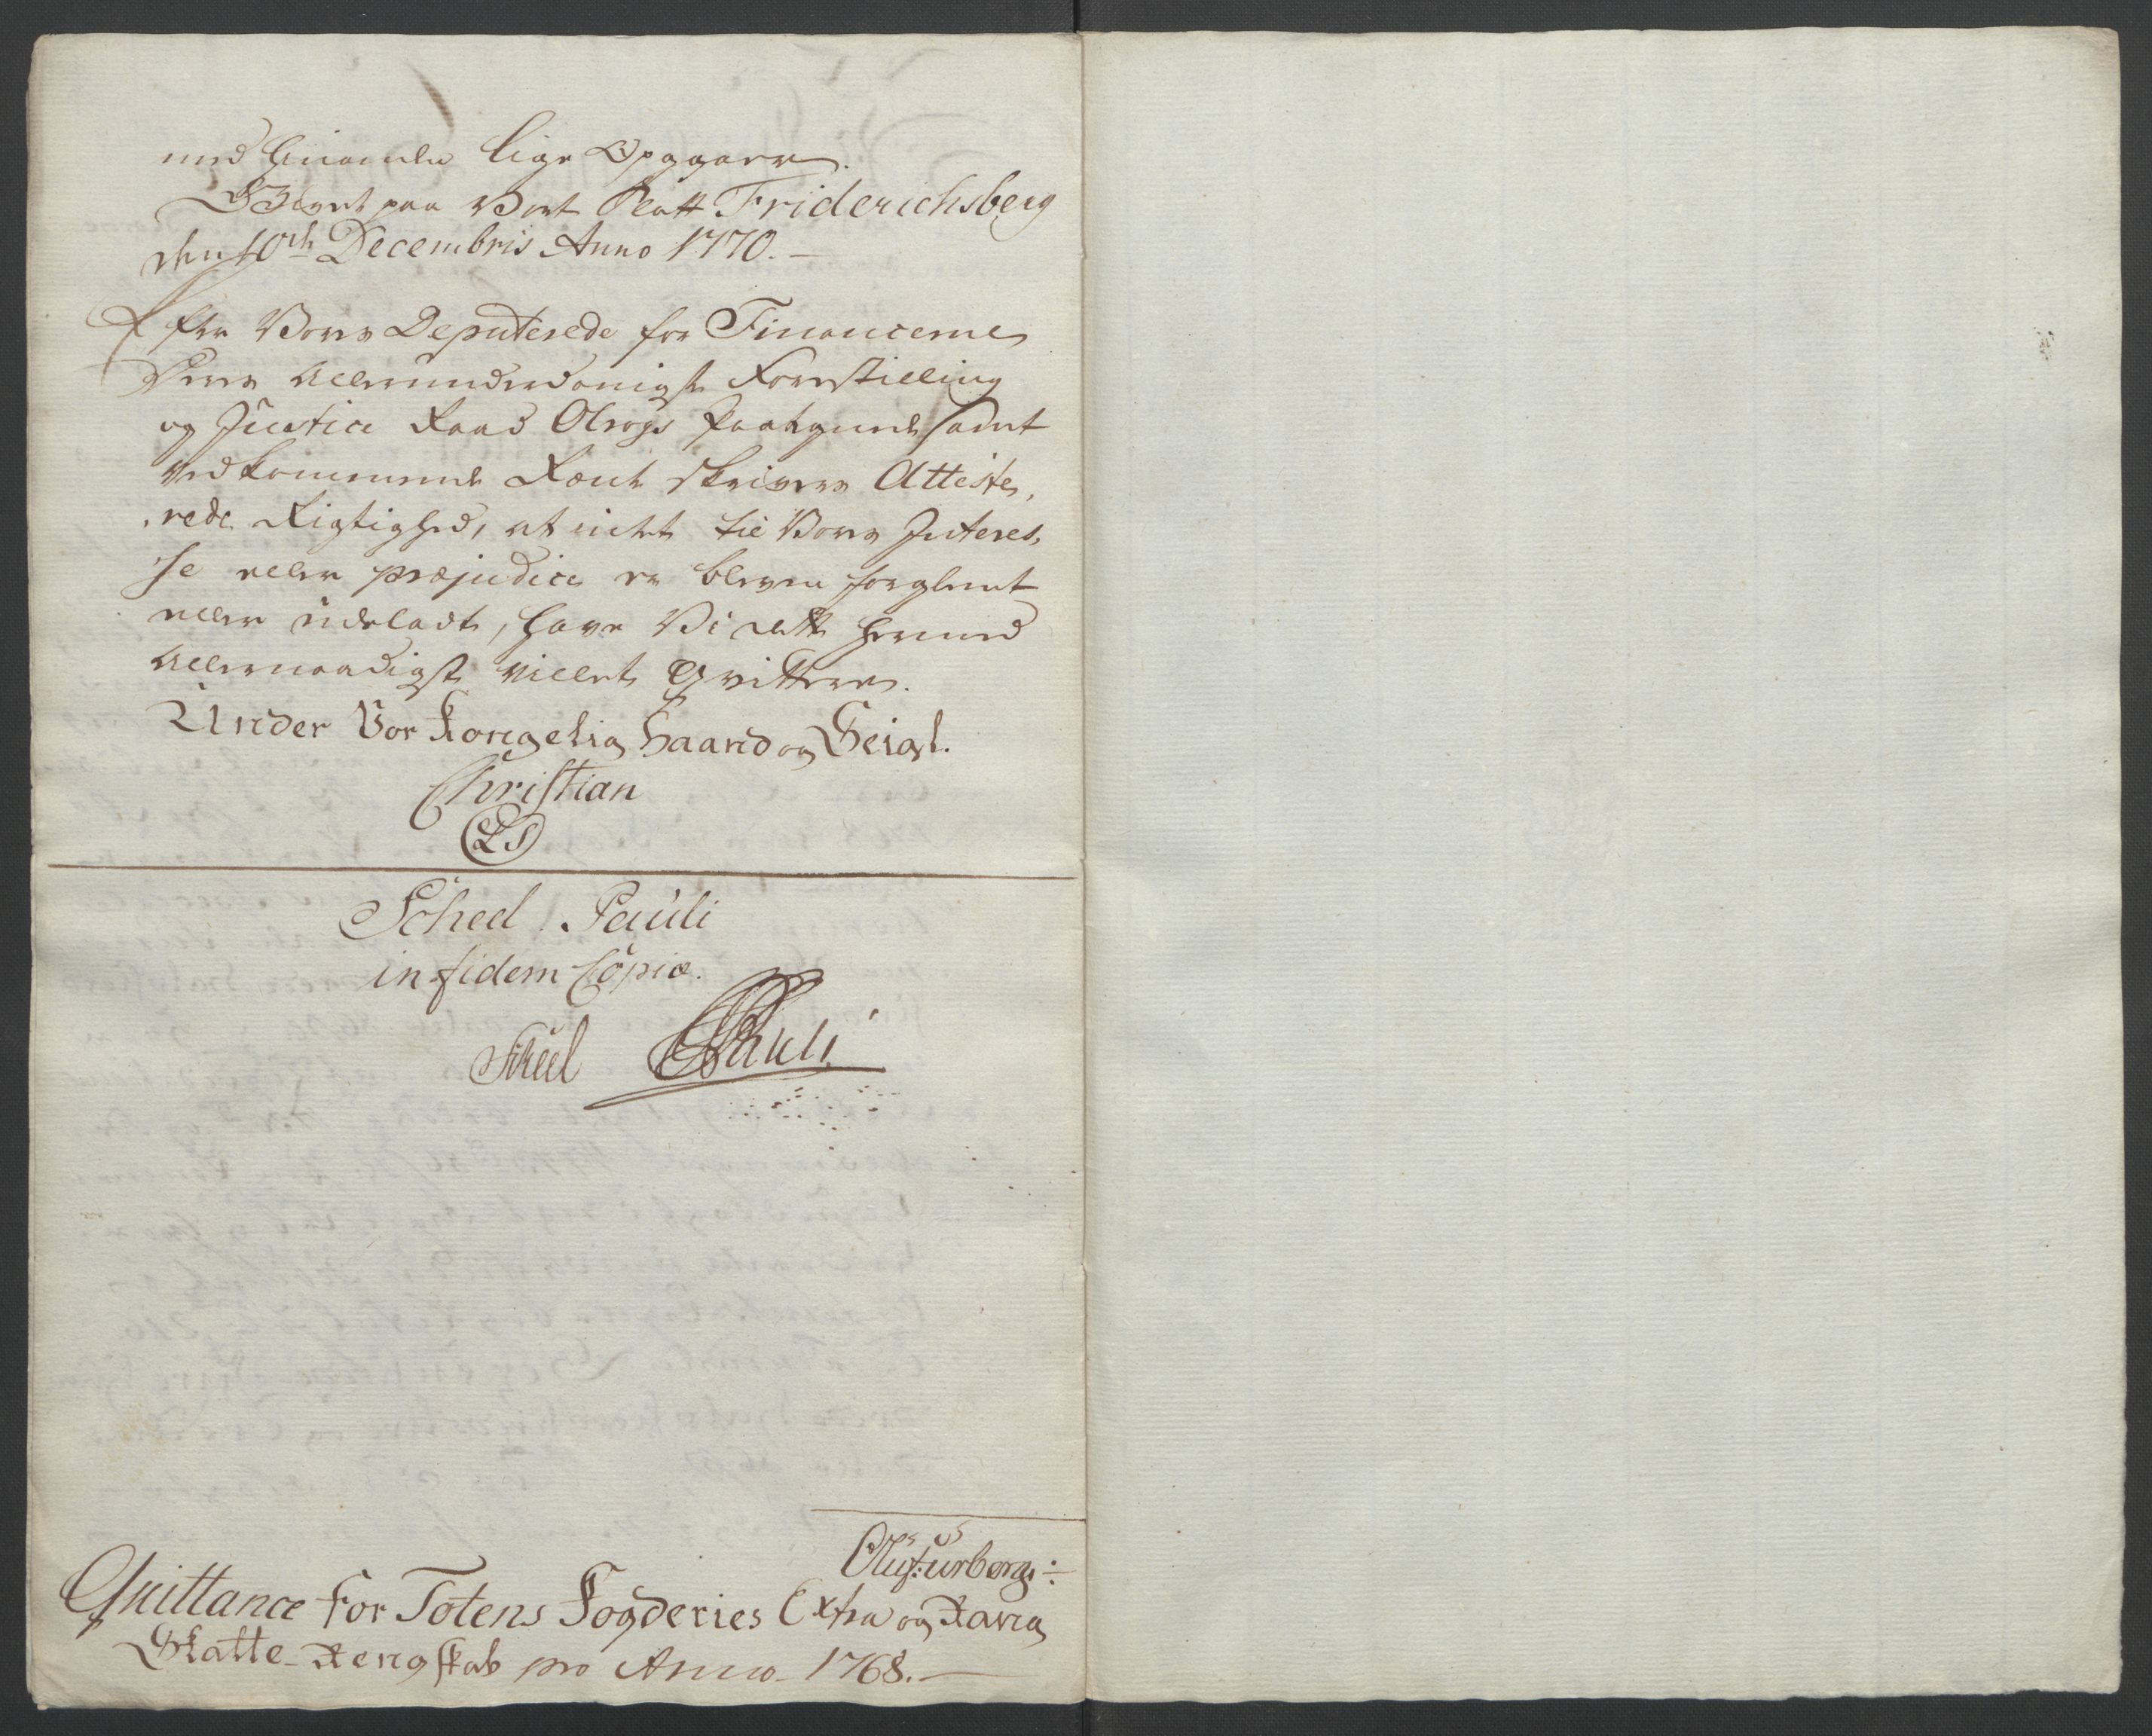 med hinanden lige Opgaaer.
Givet paa Vort Slott Friderichsberg
den 10de Decembris Anno 1770.
Efter Vores Deputerede for Financerne
Deres Allerunderdanigste Forestilling
og Justice Raad Olrogs Paategnede samt
Vedkommende Rente Skrivers Atteste,
rede Rigtighed, at intet til Vores Interes,
se eller præjudice er bleven forglemt
eller udeladt, have Vi dette hermed
Allernaadigst villet Qvittere.
Under Vor Kongelig Haand og Seigl.
Christian
LS
Scheel Pauli
in fidem Copiæ.
Scheel Pauli
Quittance for Totens Fogderies Extra og Rang
Skatte-Rengskab pro Anno 1768.